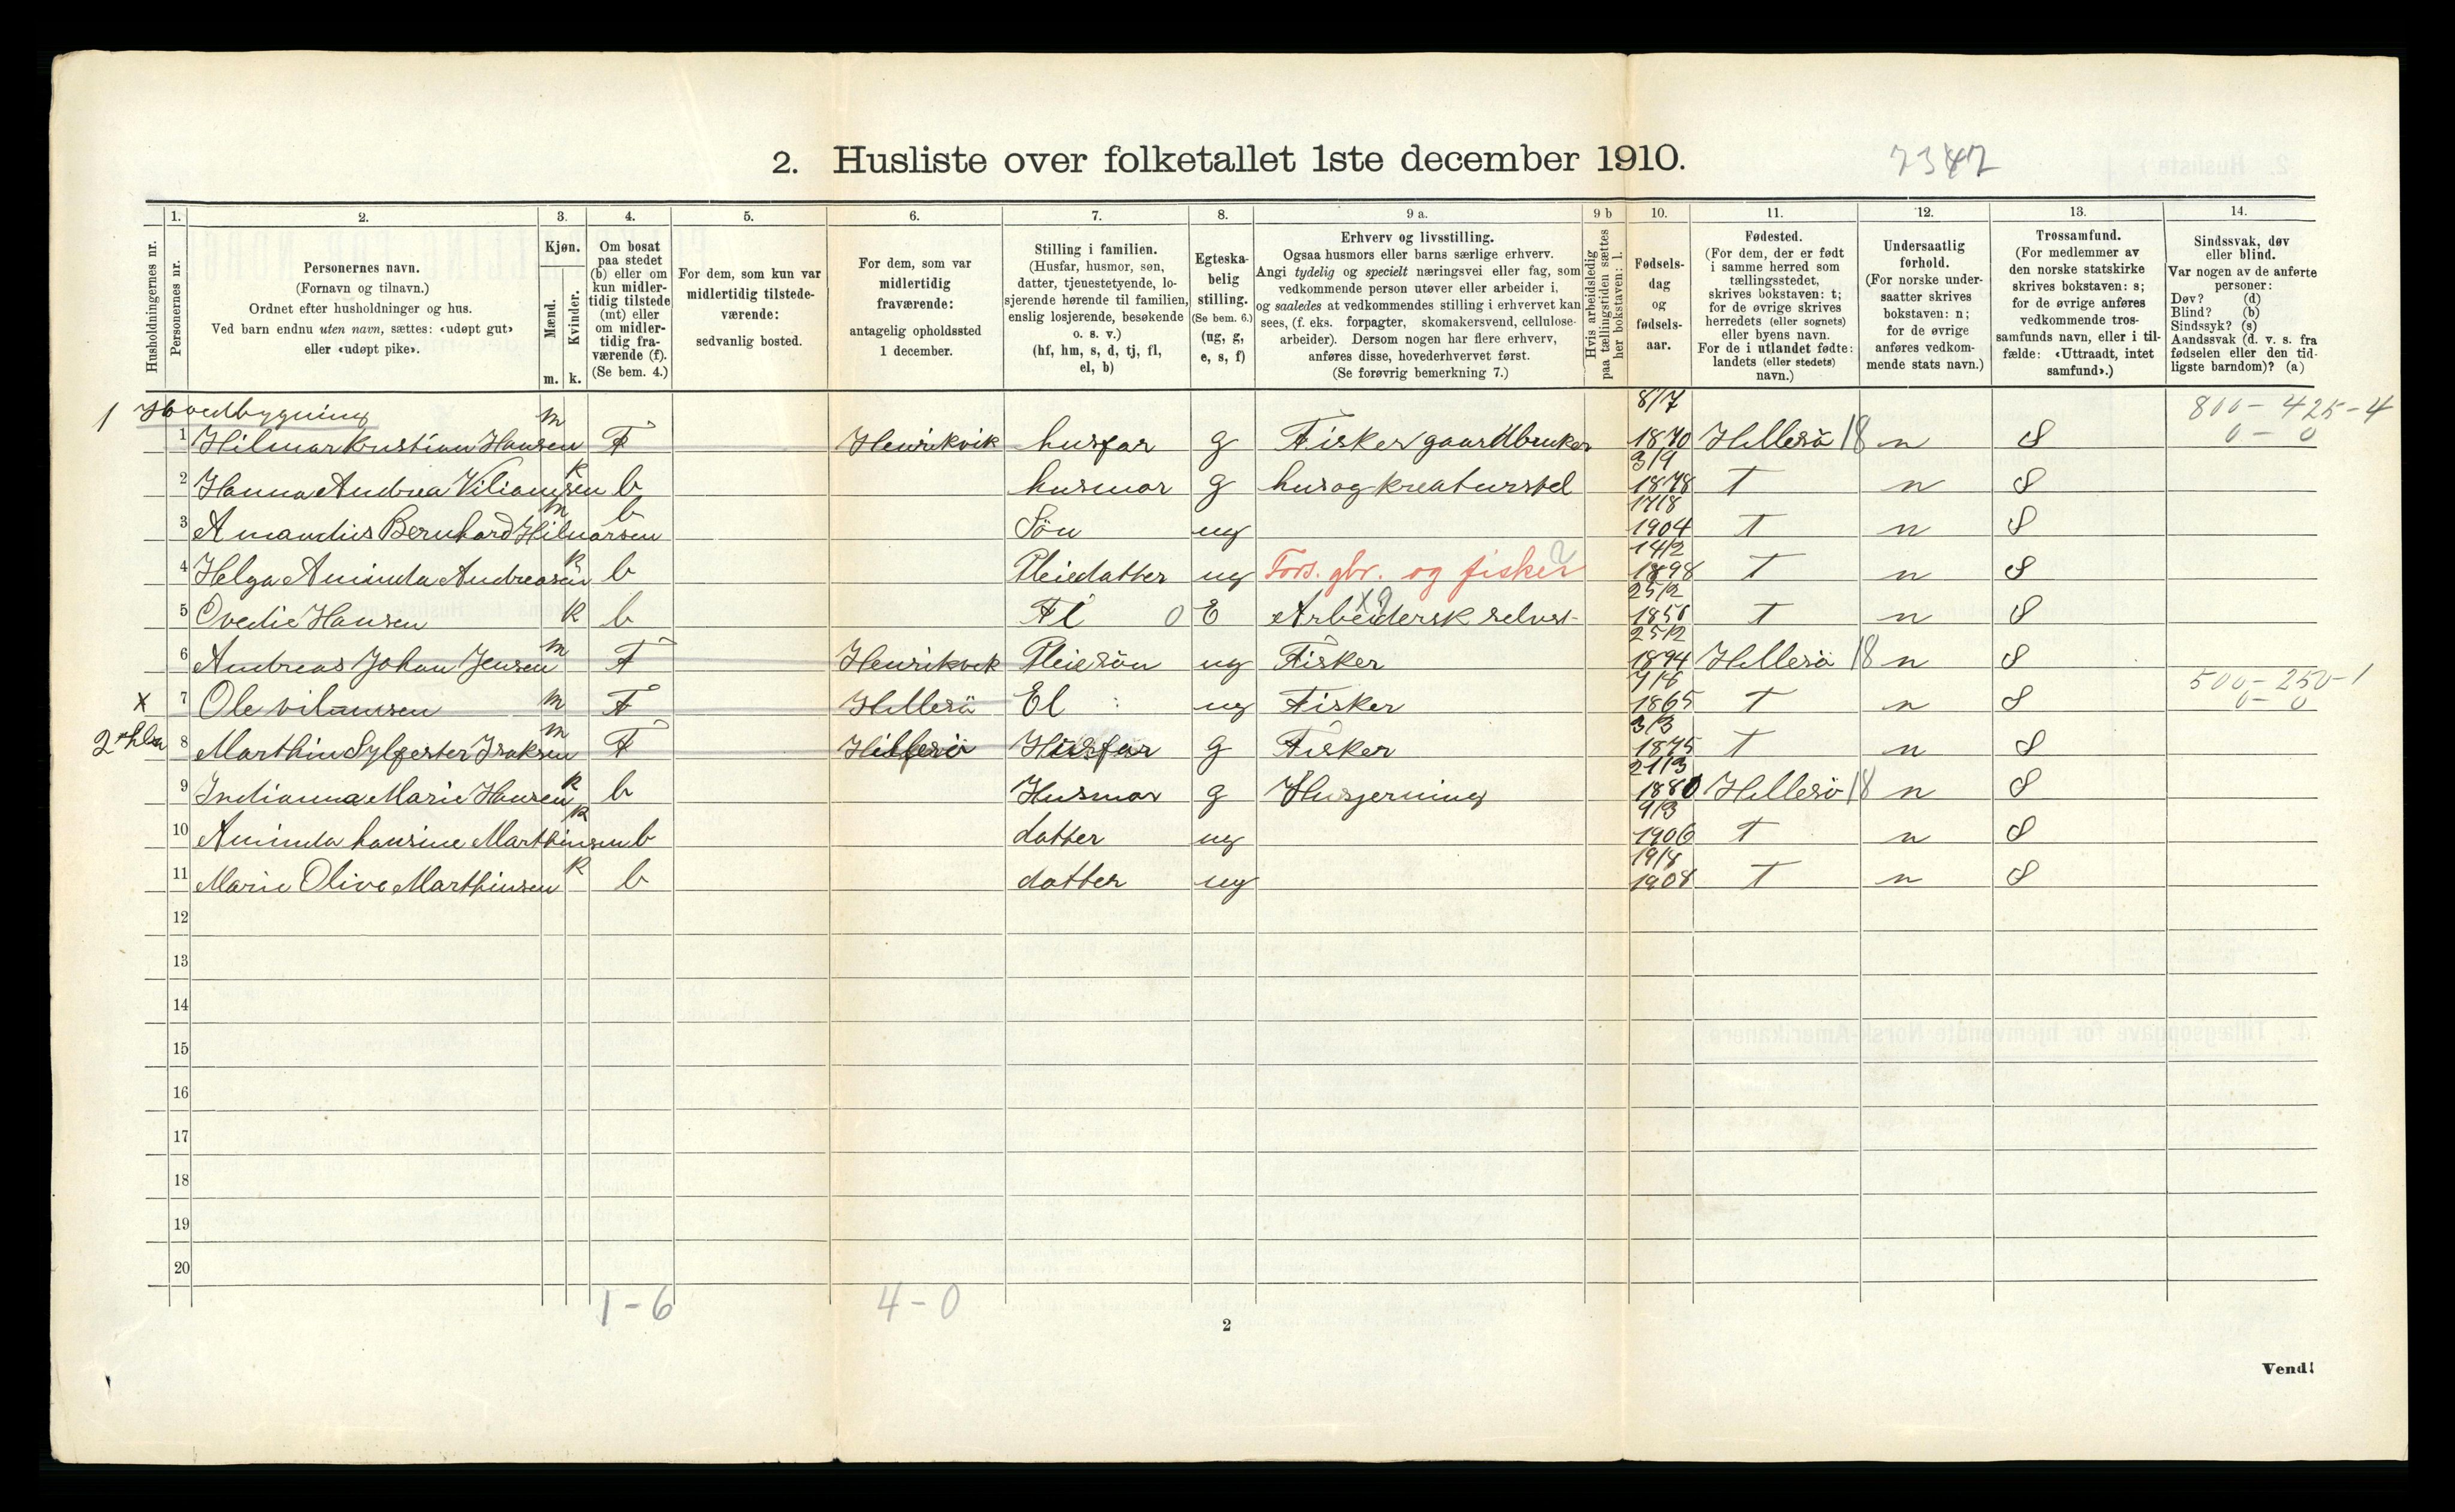 2. Husliste over folketallet 1ste december 1910.
7342
1. 2. 3. 4. 5. 6. 7. 8. 9 a. 9 b 10. 11. 12. 13. 14.
Husholdningernes nr.
Personernes nr.
Personernes navn.
(Fornavn og tilnavn.)
Ordnet efter husholdninger og hus.
Ved barn endnu uten navn, sættes: «udøpt gut»
eller «udøpt pike».
Kjøn.
Mænd.
Kvinder.
m. k.
Om bosat
paa stedet
(b) eller om
kun midler-
tidig tilstede
(mt) eller
om midler-
tidig fra-
værende (f).
(Se bem. 4.)
For dem, som kun var
midlertidig tilstede-
værende:
sedvanlig bosted.
For dem, som var
midlertidig
fraværende:
antagelig opholdssted
1 december.
Stilling i familien.
(Husfar, husmor, søn,
datter, tjenestetyende, lo-
sjerende hørende til familien,
enslig losjerende, besøkende
o. s. v.)
(hf, hm, s, d, tj, fl,
el, b)
Egteska-
belig
stilling.
(Se bem. 6.)
(ug, g,
e, s, f)
Erhverv og livsstilling.
Ogsaa husmors eller barns særlige erhverv.
Angi tydelig og specielt næringsvei eller fag, som
vedkommende person utøver eller arbeider i,
og saaledes at vedkommendes stilling i erhvervet kan
sees, (f. eks. forpagter, skomakersvend, cellulose-
arbeider). Dersom nogen har flere erhverv,
anføres disse, hovederhvervet først.
(Se forøvrig bemerkning 7.)
Hvis arbeidsledig
paa tællingstiden sættes
her bokstaven: l.
Fødsels-
dag
og
fødsels-
aar.
Fødested.
(For dem, der er født
i samme herred som
tællingsstedet,
skrives bokstaven: t;
for de øvrige skrives
herredets (eller sognets)
eller byens navn.
For de i utlandet fødte:
landets (eller stedets)
navn.)
Undersaatlig
forhold.
(For norske under-
saatter skrives
bokstaven: n;
for de øvrige
anføres vedkom-
mende stats navn.)
Trossamfund.
(For medlemmer av
den norske statskirke
skrives bokstaven: s;
for de øvrige anføres
vedkommende tros-
samfunds navn, eller i til-
fælde: «Uttraadt, intet
samfund».)
Sindssvak, døv
eller blind.
Var nogen av de anførte
personer:
Døv? (d)
Blind? (b)
Sindssyk? (s)
Aandssvak (d. v. s. fra
fødselen eller den tid-
ligste barndom)? (a)
1 Hovedbygning m 8/7 800 - 425 - 4
1 Hilmar Kristian Hansen F Henrikvik husfar g Fisker gaardbruker 1870 Hillesö 18 n S 0 - 0
k 3/9
2 Hanna Andrea Viliamsen b husmor g hus og kreaturstel 1878 T n S
m 17/8
3 Amandus Bernhard Hilmarsen b Sön ug 1904 T n S
k 14/2
4 Helga Aminda Andreasen b Pleiedatter ug Fors. gbr. og fisker 2 1898 T n S
25/2
5 Ovedie Hansen k b Fl 0 E Arbeidersk 1850 T n S
m 25/2
6 Andreas Johan Jensen F Henrikvik Pleiesön ug Fisker 1894 Hillesö 18 n S
500 - 250 - 1
x 7 Ole Viliamsen m F Hillesö El ug Fisker 1865 T n S 0 - 0
m 3/3
2 8 Marthin Sylfester Isaksen F Hillesö Husfar g Fisker 1875 T n S
k 21/3
9 Indianna Marie Hansen b Husmor g Husgjerning 1880 Hillesö 18 n S
k 9/3
10 Aminda hansine Marthinsen b datter ug 1906 T n S
k 19/8
11 Marie Olive Marthinsen b datter ug 1908 T n S
12
13
14
15
16
17
18
19
20
1 - 6 4 - 0
2
Vend!